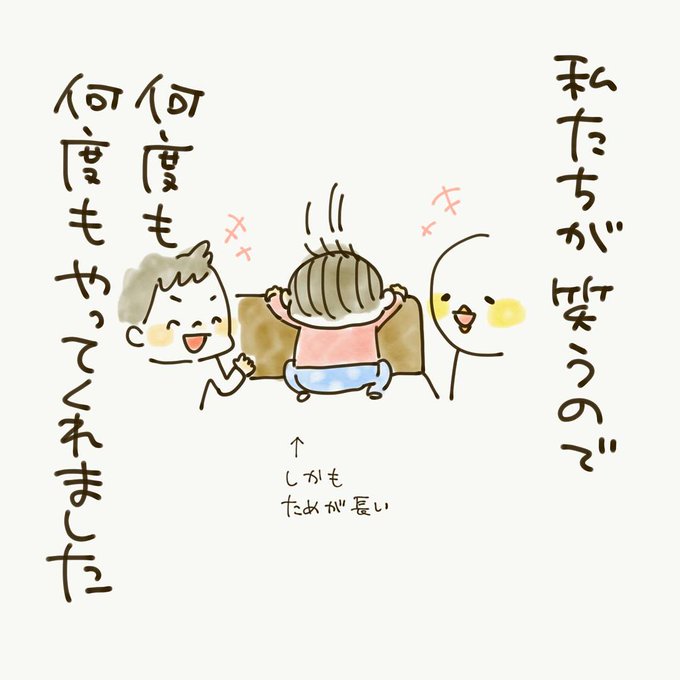 私たちが笑うので
何度も
何度もやってくれました
↑
しかも
ためが長い